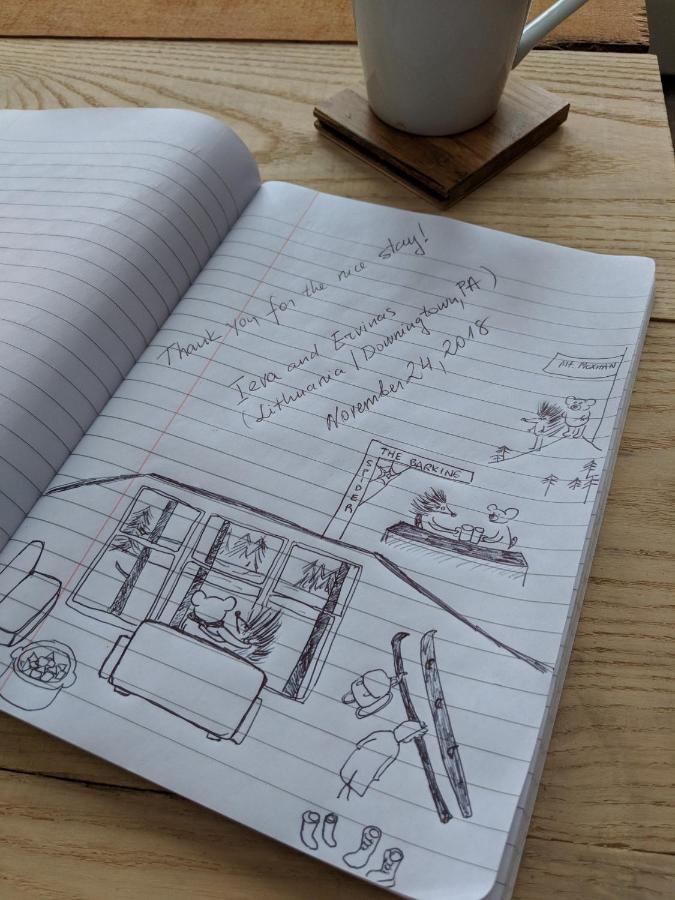 Thank you for the nice stay!
Ieva and Ervinas
(Lithuania / Downingtown, PA)
November 24, 2018
THE BARKING
SPIDER